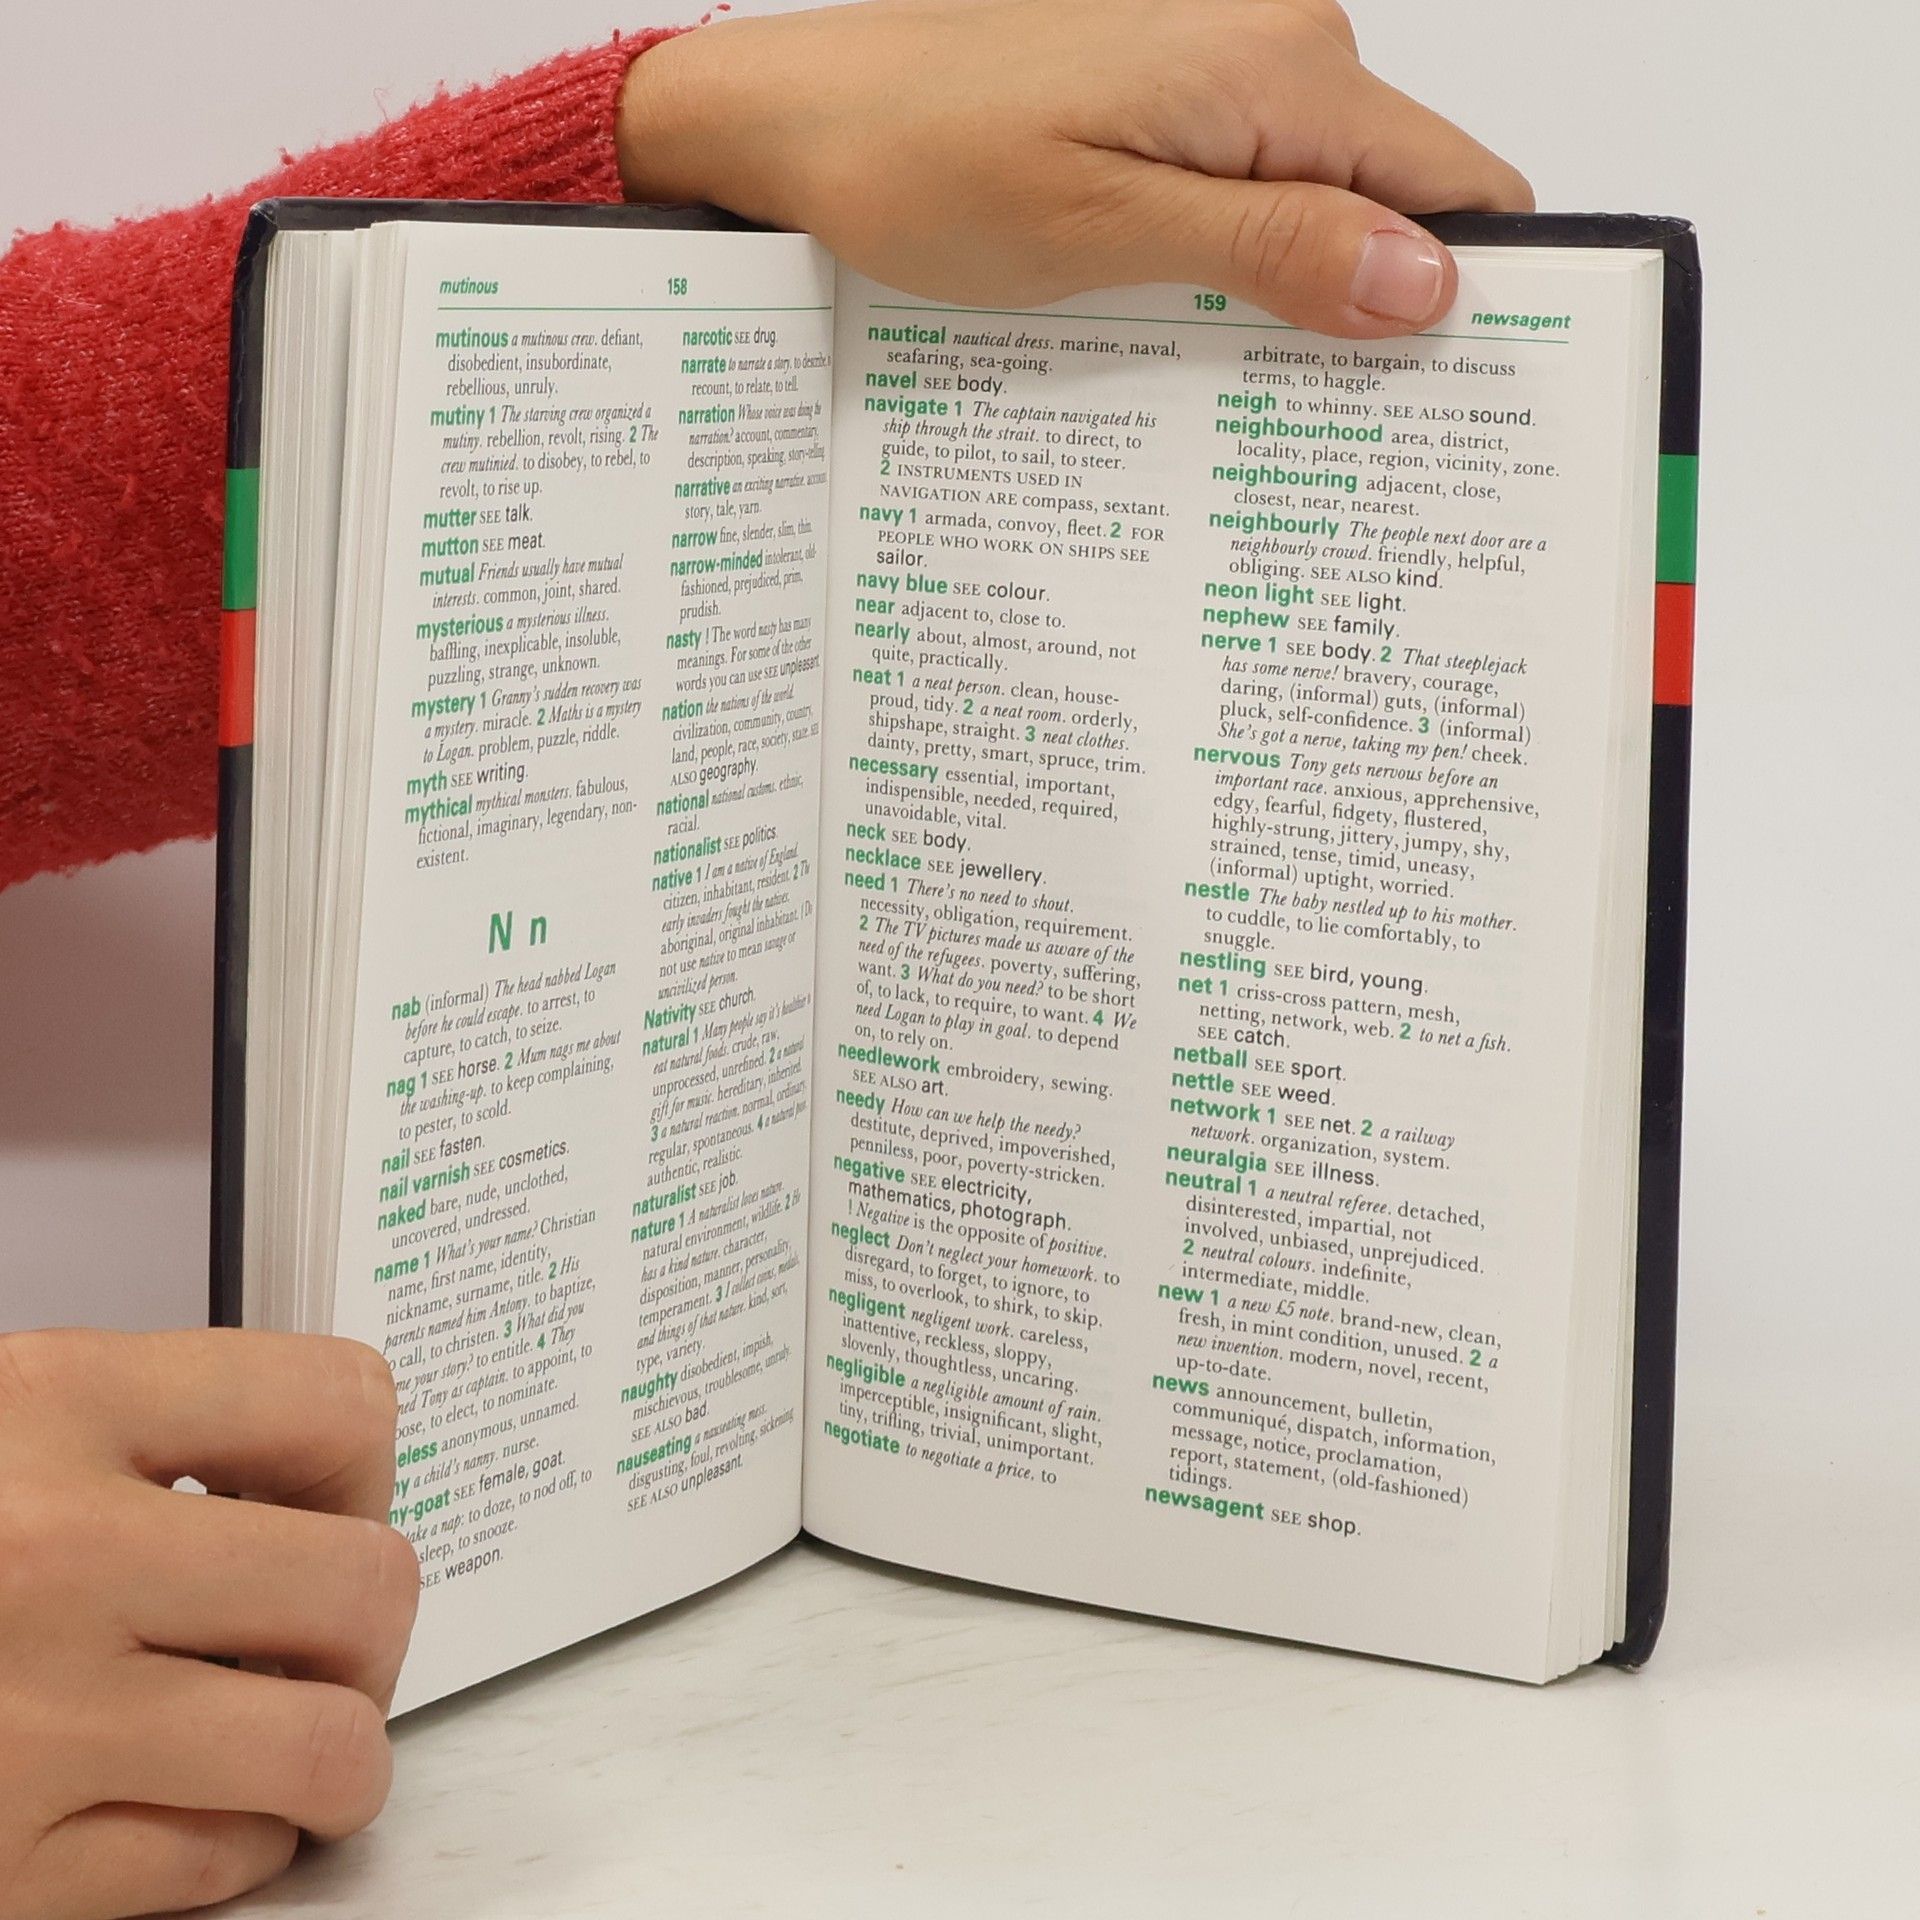 mutinous
158
mutinous a mutinous crew. defiant,
disobedient, insubordinate,
rebellious, unruly.
mutiny 1 The starving crew organized a
mutiny. rebellion, revolt, rising. 2 The
crew mutinied. to disobey, to rebel, to
revolt, to rise up.
mutter SEE talk.
mutton SEE meat.
mutual Friends usually have mutual
interests. common, joint, shared.
mysterious a mysterious illness.
baffling, inexplicable, insoluble,
puzzling, strange, unknown.
mystery 1 Granny's sudden recovery was
a mystery. miracle. 2 Maths is a mystery
to Logan. problem, puzzle, riddle.
myth SEE writing.
mythical mythical monsters. fabulous,
fictional, imaginary, legendary, non-
existent.
N n
nab (informal) The head nabbed Logan
before he could escape. to arrest, to
capture, to catch, to seize.
nag 1 SEE horse. 2 Mum nags me about
the washing-up. to keep complaining,
to pester, to scold.
nail SEE fasten.
nail varnish SEE cosmetics.
naked bare, nude, unclothed,
uncovered, undressed.
name 1 What's your name? Christian
name, first name, identity,
nickname, surname, title. 2 His
parents named him Antony. to baptize,
o call, to christen. 3 What did you
me your story? to entitle. 4 They
ned Tony as captain. to appoint, to
oose, to elect, to nominate.
eless anonymous, unnamed.
ny a child's nanny. nurse.
ny-goat SEE female, goat.
take a nap: to doze, to nod off, to
sleep, to snooze.
SEE weapon.
narcotic SEE drug.
narrate to narrate a story. to describe, to
recount, to relate, to tell.
narration Whose voice was doing the
narration? account, commentary,
description, speaking, story-telling.
narrative an exciting narrative. account,
story, tale, yarn.
narrow fine, slender, slim, thin.
narrow-minded intolerant, old-
fashioned, prejudiced, prim,
prudish.
nasty ! The word nasty has many
meanings. For some of the other
words you can use SEE unpleasant.
nation the nations of the world.
civilization, community, country,
land, people, race, society, state. SEE
ALSO geography.
national national customs. ethnic,
racial.
nationalist SEE politics.
native 1 I am a native of England.
citizen, inhabitant, resident. 2 The
early invaders fought the natives.
aboriginal, original inhabitant. ! Do
not use native to mean savage or
uncivilized person.
Nativity SEE church.
natural 1 Many people say it's healthier to
eat natural foods. crude, raw,
unprocessed, unrefined. 2 a natural
gift for music. hereditary, inherited.
3 a natural reaction. normal, ordinary,
regular, spontaneous. 4 a natural pose.
authentic, realistic.
naturalist SEE job.
nature 1 A naturalist loves nature.
natural environment, wildlife. 2 He
has a kind nature. character,
disposition, manner, personality,
temperament. 3 I collect coins, medals,
and things of that nature. kind, sort,
type, variety.
naughty disobedient, impish,
mischievous, troublesome, unruly.
SEE ALSO bad.
nauseating a nauseating mess.
disgusting, foul, revolting, sickening
SEE ALSO unpleasant.
159
newsagent
nautical nautical dress. marine, naval,
seafaring, sea-going.
navel SEE body.
navigate 1 The captain navigated his
ship through the strait. to direct, to
guide, to pilot, to sail, to steer.
2 INSTRUMENTS USED IN
NAVIGATION ARE compass, sextant.
navy 1 armada, convoy, fleet. 2 FOR
PEOPLE WHO WORK ON SHIPS SEE
sailor.
navy blue SEE colour.
near adjacent to, close to.
nearly about, almost, around, not
quite, practically.
neat 1 a neat person. clean, house-
proud, tidy. 2 a neat room. orderly,
shipshape, straight. 3 neat clothes.
dainty, pretty, smart, spruce, trim.
necessary essential, important,
indispensible, needed, required,
unavoidable, vital.
neck SEE body.
necklace SEE jewellery.
need 1 There's no need to shout.
necessity, obligation, requirement.
2 The TV pictures made us aware of the
need of the refugees. poverty, suffering,
want. 3 What do you need? to be short
of, to lack, to require, to want. 4 We
need Logan to play in goal. to depend
on, to rely on.
needlework embroidery, sewing.
SEE ALSO art.
needy How can we help the needy?
destitute, deprived, impoverished,
penniless, poor, poverty-stricken.
negative SEE electricity,
mathematics, photograph.
! Negative is the opposite of positive.
neglect Don't neglect your homework. to
disregard, to forget, to ignore, to
miss, to overlook, to shirk, to skip.
negligent negligent work. careless,
inattentive, reckless, sloppy,
slovenly, thoughtless, uncaring.
negligible a negligible amount of rain.
imperceptible, insignificant, slight,
tiny, trifling, trivial, unimportant.
negotiate to negotiate a price. to
arbitrate, to bargain, to discuss
terms, to haggle.
neigh to whinny. SEE ALSO sound.
neighbourhood area, district,
locality, place, region, vicinity, zone.
neighbouring adjacent, close,
closest, near, nearest.
neighbourly The people next door are a
neighbourly crowd. friendly, helpful,
obliging. SEE ALSO kind.
neon light SEE light.
nephew SEE family.
nerve 1 SEE body. 2 That steeplejack
has some nerve! bravery, courage,
daring, (informal) guts, (informal)
pluck, self-confidence. 3 (informal)
She's got a nerve, taking my pen! cheek.
nervous Tony gets nervous before an
important race. anxious, apprehensive,
edgy, fearful, fidgety, flustered,
highly-strung, jittery, jumpy, shy,
strained, tense, timid, uneasy,
(informal) uptight, worried.
nestle The baby nestled up to his mother.
to cuddle, to lie comfortably, to
snuggle.
nestling SEE bird, young.
net 1 criss-cross pattern, mesh,
netting, network, web. 2 to net a fish.
SEE catch.
netball SEE sport.
nettle SEE weed.
network 1 SEE net. 2 a railway
network. organization, system.
neuralgia SEE illness.
neutral 1 a neutral referee. detached,
disinterested, impartial, not
involved, unbiased, unprejudiced.
2 neutral colours. indefinite,
intermediate, middle.
new 1 a new £5 note. brand-new, clean,
fresh, in mint condition, unused. 2 a
new invention. modern, novel, recent,
up-to-date.
news announcement, bulletin,
communiqué, dispatch, information,
message, notice, proclamation,
report, statement, (old-fashioned)
tidings.
newsagent SEE shop.